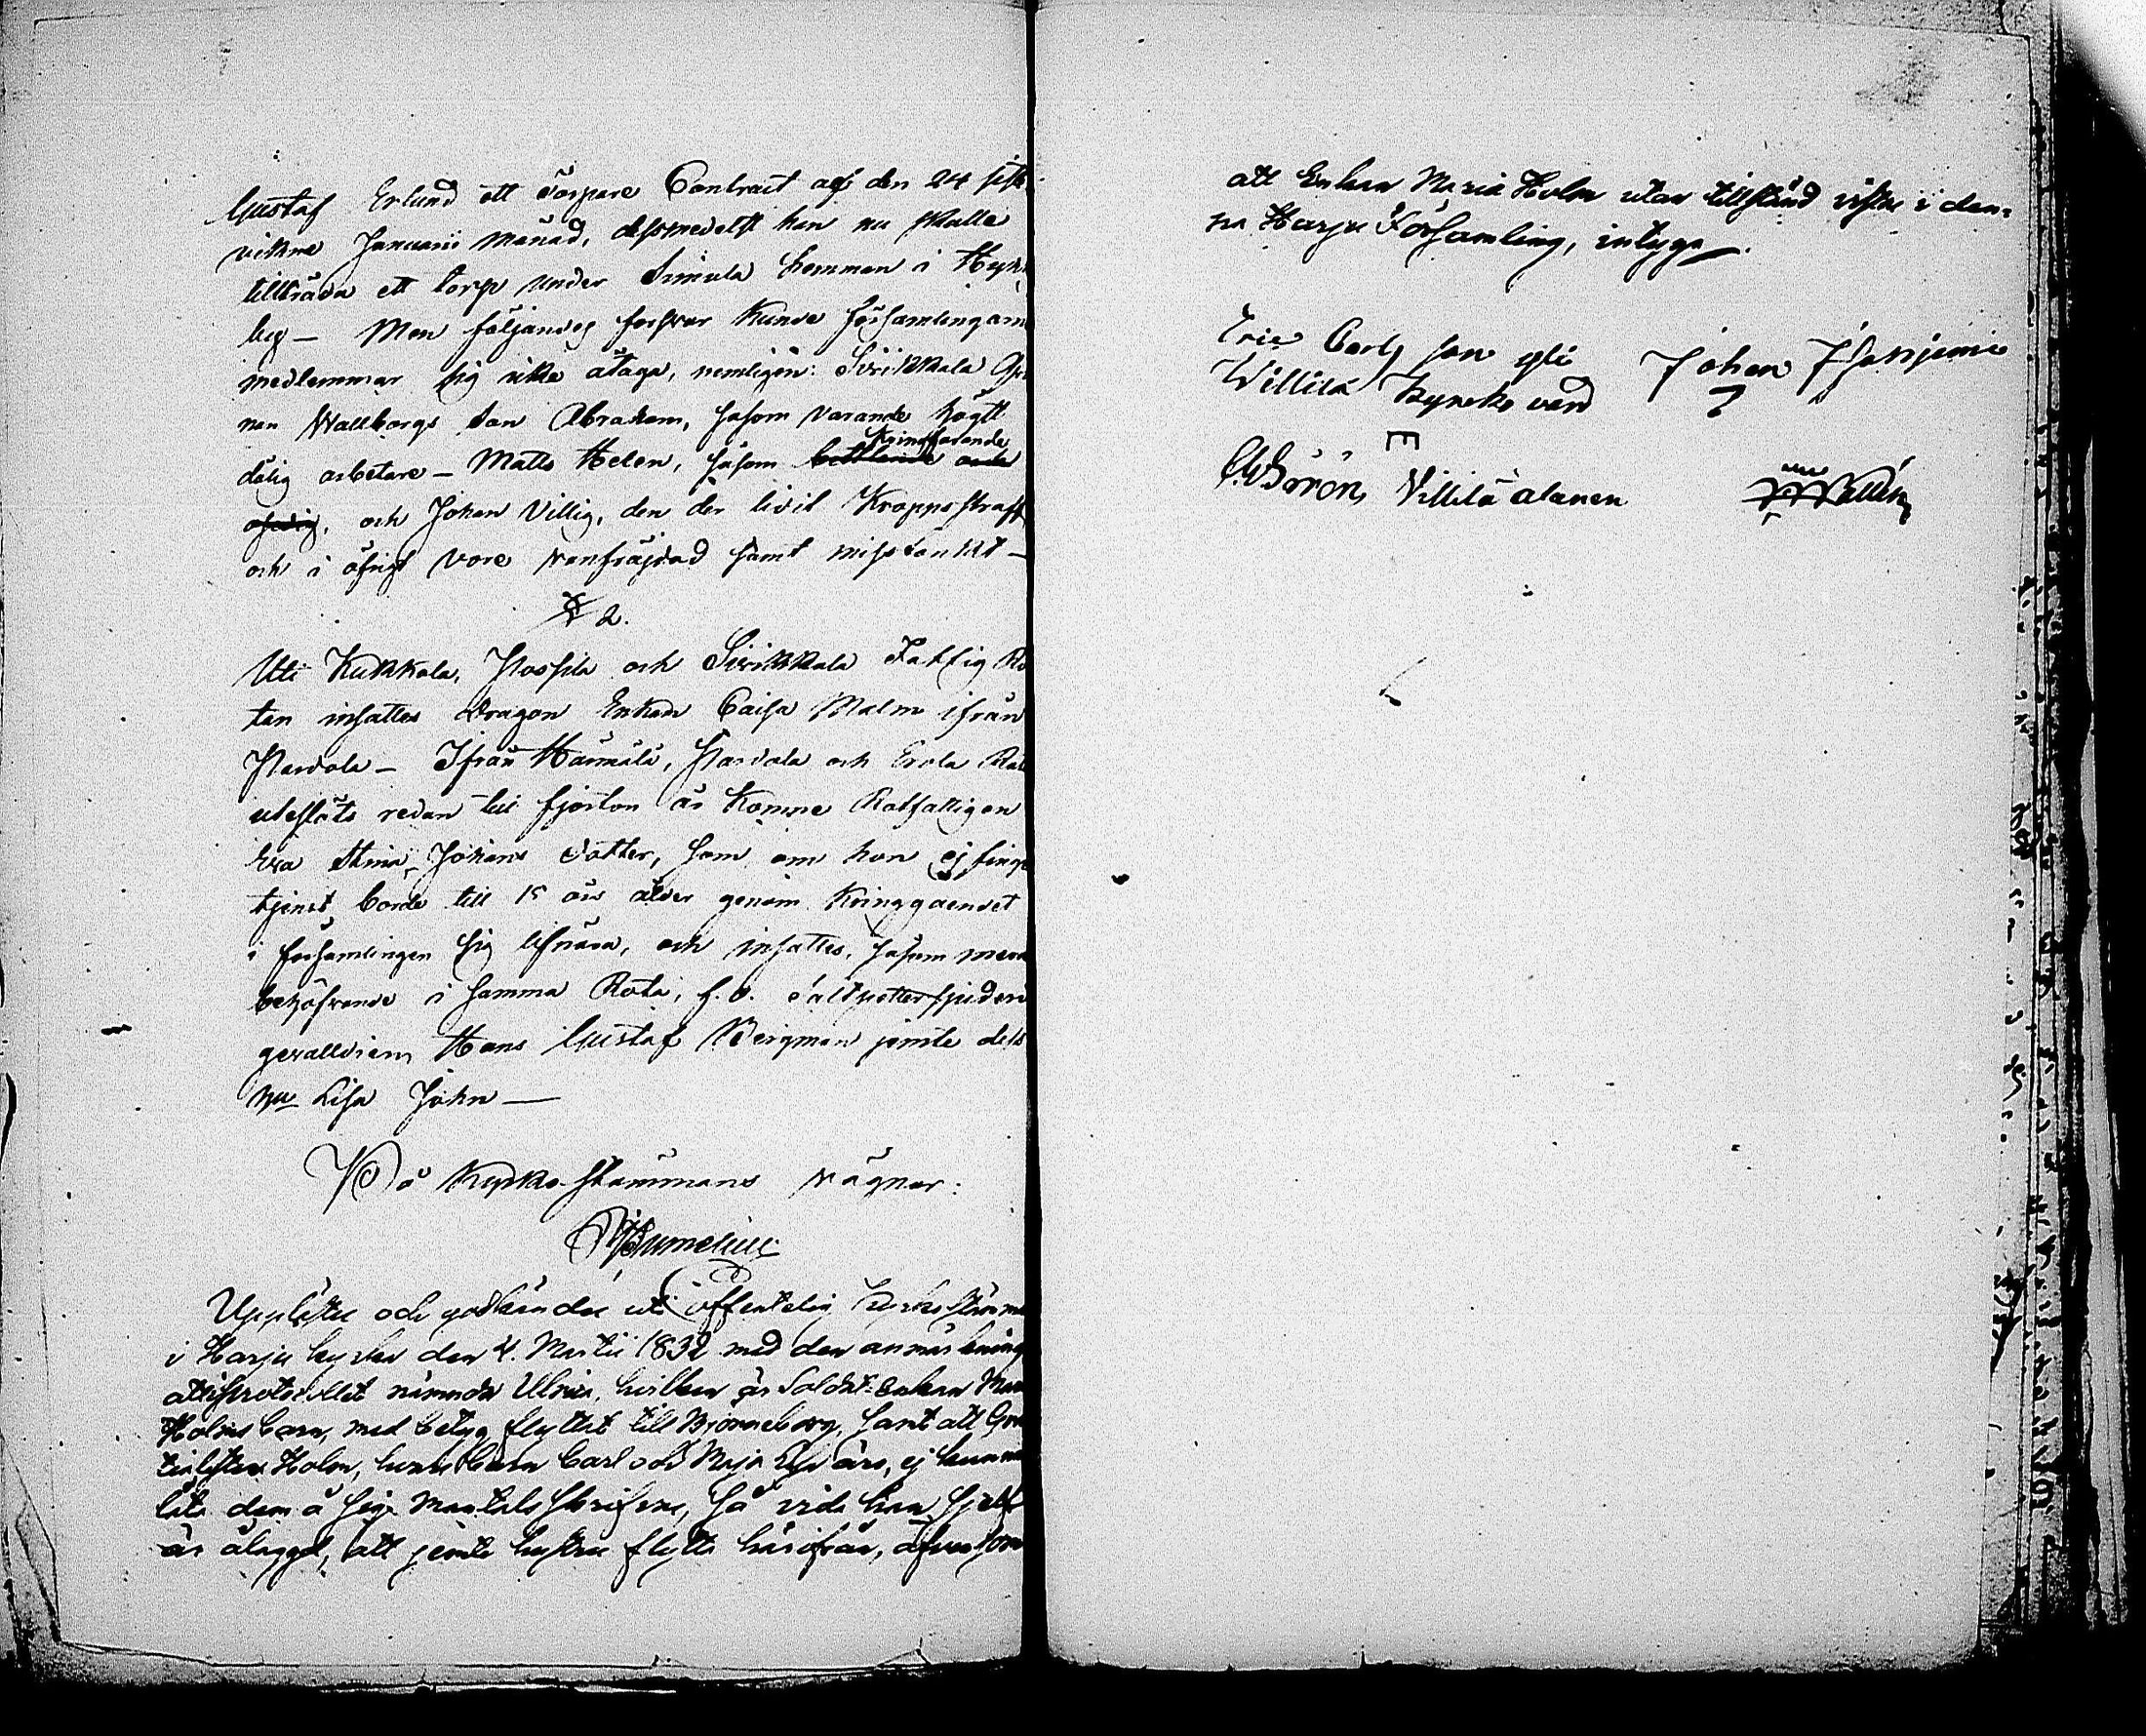 Gustaf Erlund ett Torpare Contract af den 24 sist
vikne Januarii Månad, dessmedelst han nu skulle
tillträda ett torp under Simula hemman i
by — Men följandes försvar kunde församlingarn
medlemmar sig icke åtaga, nemligen: Svirkkala
nan Wallborgs Son Abraham, såsom varande högst
dålig arbetare — Matts Helen, såsom kringfarande
och Johan Villig, den der livit Kroppsstraff
och i öfrigt vore vanfräjdad samt misstänkt —
§ 2.
Uti Kukkola, Hossila och Svirkkala Fattig Ro
ten insattes Dragon Enkan Caisa Malm ifrån
Hardola — Ifrån Härmälä, Hardola och Erola
uteslöts redan till fjorton år komne Rotfattigan
Eva Stina Johans dotter, som om hon ej finge
tjenst, borde till 15 års ålder genom kringgåendet
i församlingen sig lifnära, och insattes, såsom mera
behöfvande i samma Rota, f. d. Saltpettersjuderi
gevalldiern Hans Gustaf Bergman jemte dess
Lisa John —
På Kyrko-stämmans vägnar:
Upplästes och godkändes uti offentelig Kyrkostämma
i Harju kyrka den 4. Martii 1832 med den anmärkning
att i Protocollet nämnda Ulrica, hvilken är Soldat-Enkan
Holms barn, med betyg flyttat till Björneborg, samt att
Holm, hvars barn Carl och Maja äro, ej kunna
låta dem å sig Mantalsskrifvas, så vida han sjelf
är ålaggd, att jemte hustru flytta härifrån, äfvensom
att Enkan Maria Holm utan tillstånd vistas i den-
na Harju Församling, intyga.
Eric Carlsson Johan
Willilä Kyrkovärd
Villilä alanen